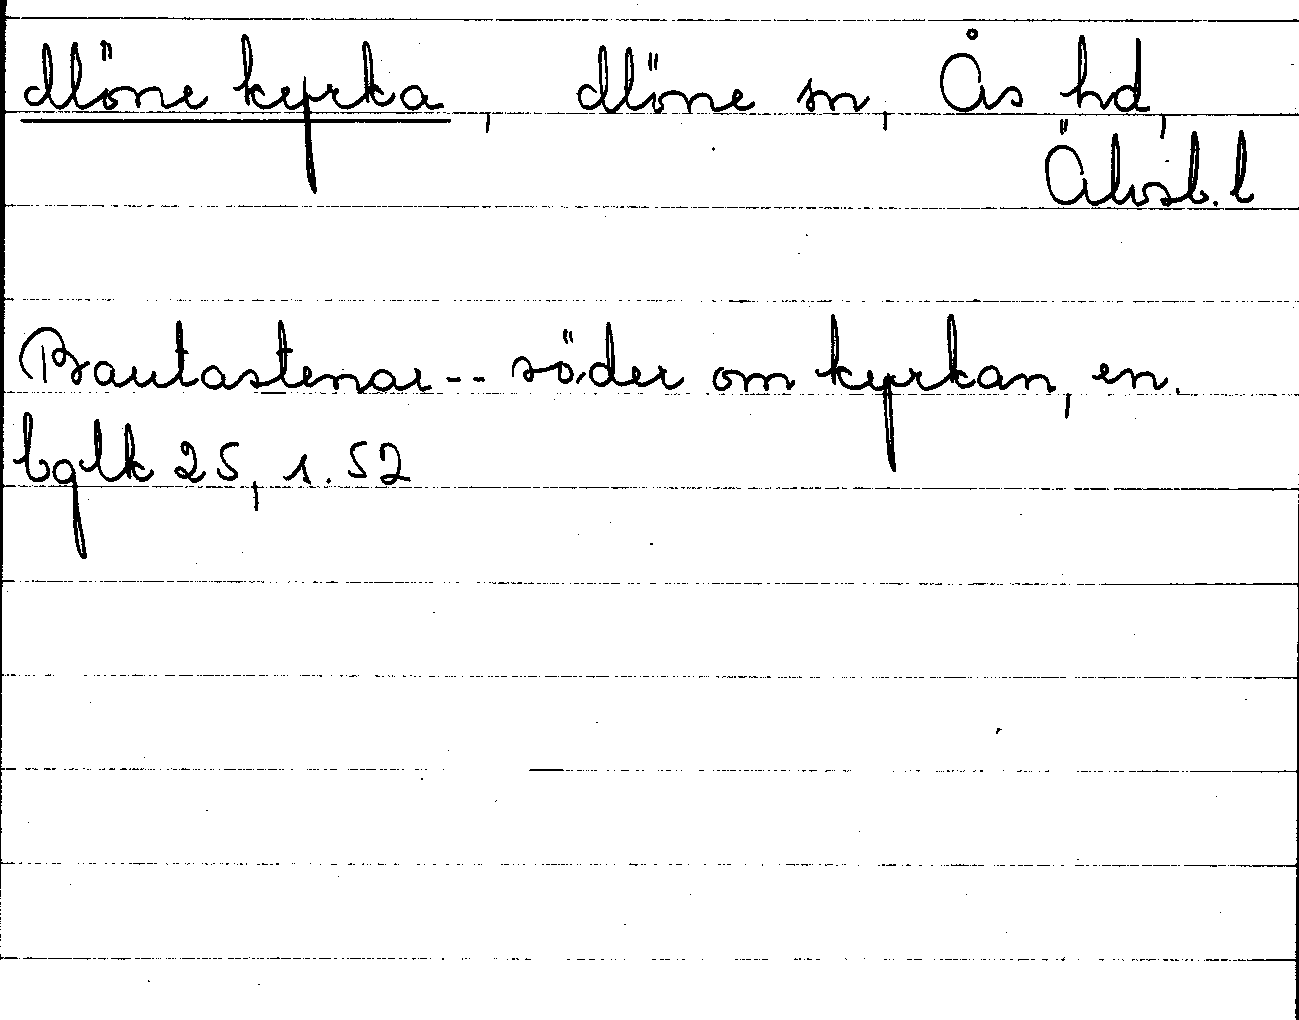 Möne kyrka, Möne sn, Ås hd,
Älvsb. l
Bautastenar -- söder om kyrkan, en.
bglk 25, s. 52